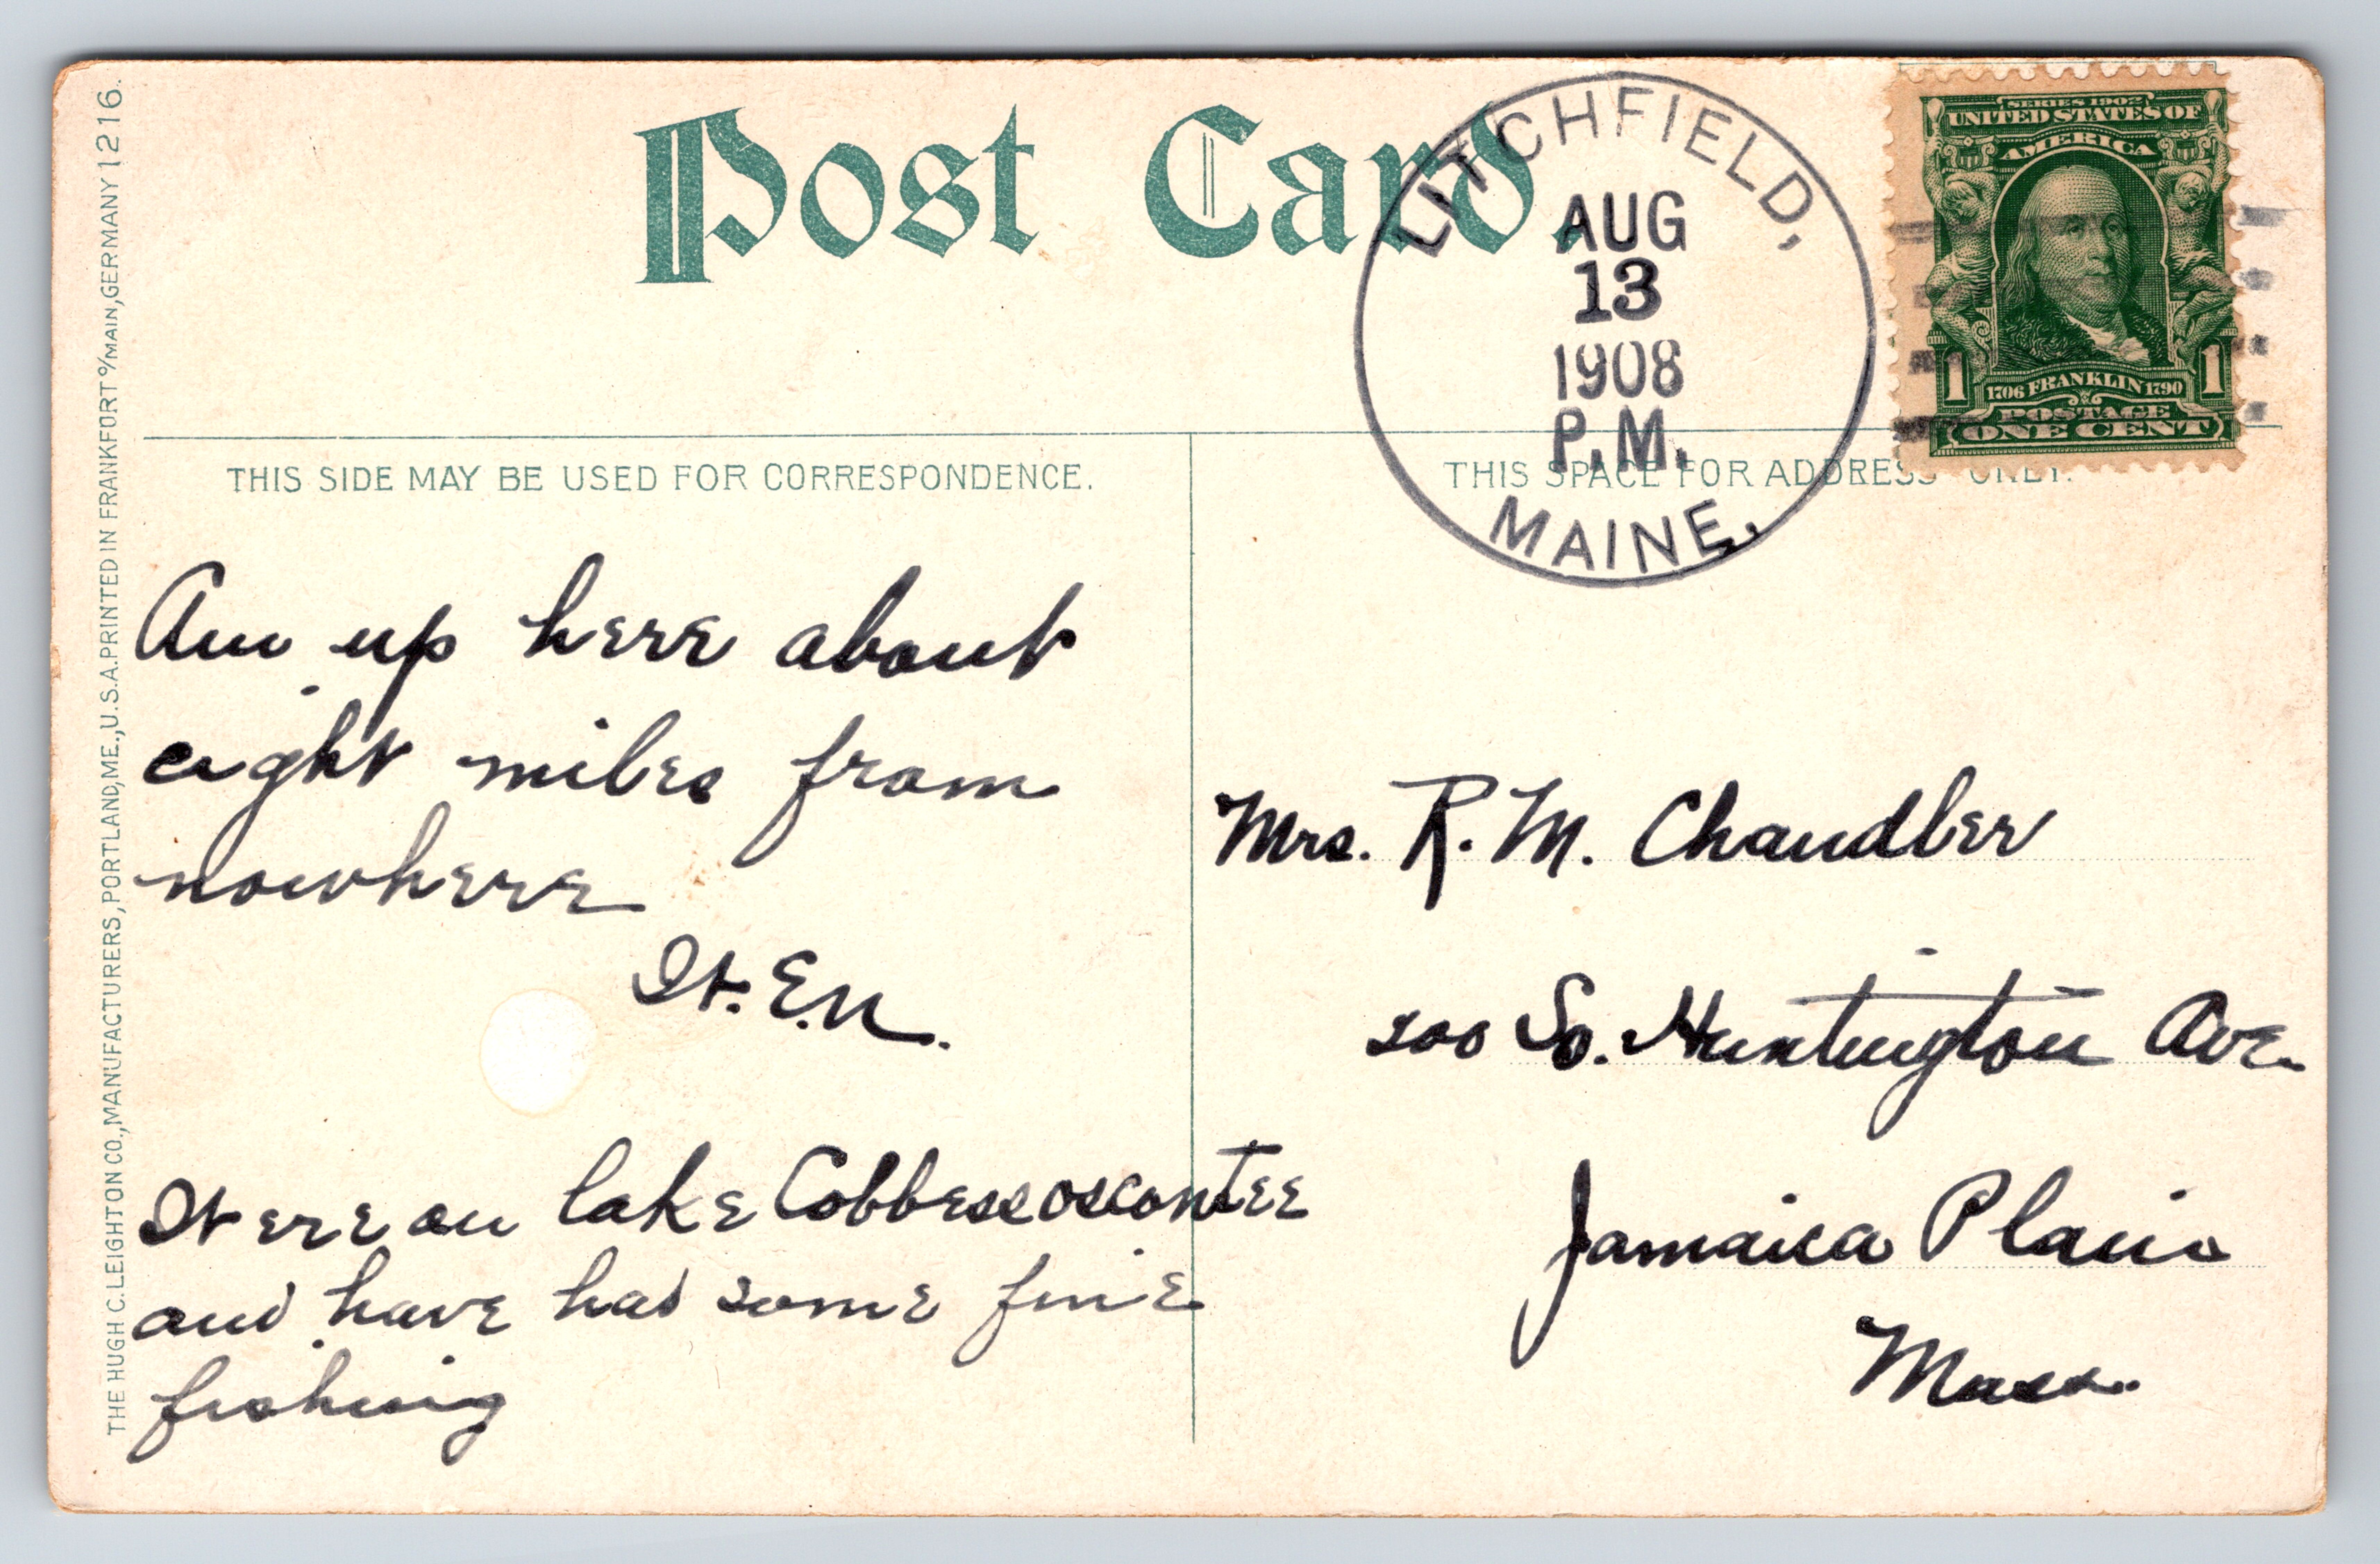 THE HUGH C. LEIGHTON CO., MANUFACTURERS, PORTLAND, ME., U.S.A. PRINTED IN FRANKFORT o/MAIN, GERMANY 1216.
Post Card.
LITCHFIELD,
AUG
13
1908
P.M.
MAINE.
SERIES 1902
UNITED STATES OF
AMERICA
1706 FRANKLIN 1790
1 1
POSTAGE
ONE CENT
THIS SIDE MAY BE USED FOR CORRESPONDENCE.
Am up here about
eight miles from
nowhere
H. E. N.
Here on lake Cobbesseoscontee
and have had some fine
fishing
THIS SPACE FOR ADDRESS ONLY.
Mrs. R. M. Chandler
200 So. Huntington Ave.
Jamaica Plain
Mass.